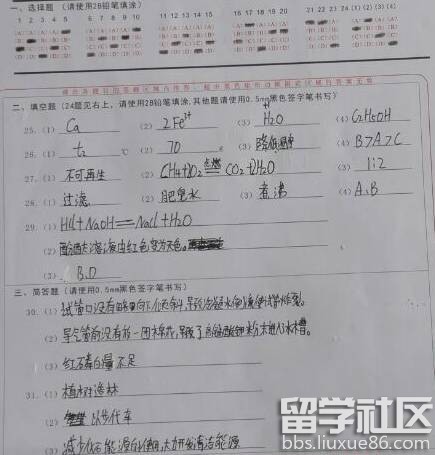 一、选择题 (请使用2B铅笔填涂)
1 2 3 4 5 6 7 8 9 10 11 12 13 14 15 16 17 18 19 20 21 22 23 24 (1) (2) (3) (4)
二、填空题 (24题见右上,请使用2B铅笔填涂,其他题请使用0.5mm黑色签字笔书写)
25. (1) Ca (2) 2Fe³⁺ (3) H₂O (4) C₂H₅OH
26. (1) t₂ ℃ (2) 70 (3) 降低温度 (4) B>A>C
27. (1) 不可再生 (2) CH₄+2O₂ 点燃 CO₂+2H₂O (3) 1:2
28. (1) 过滤 (2) 肥皂水 (3) 煮沸 (4) A、B
29. (1) HCl+NaOH=NaCl+H₂O
(2) 酚酞溶液由红色变为无色。
(3) B.D
三、简答题 (请使用0.5mm黑色签字笔书写)
30. (1) 试管口没有略向下倾斜,导致冷凝水倒流使试管炸裂。
(2) 导气管前没有放一团棉花,导致了高锰酸钾粉末进入水槽。
(3) 红石磷的量不足
31. (1) 植树造林
(2) 以步代车
(3) 减少化石能源的使用,大力开发清洁能源
留学社区
bbs.liuxue86.com